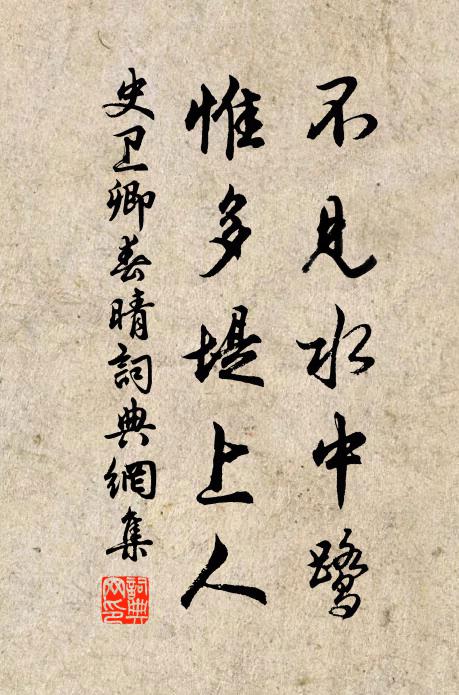 不见水中鹭
惟多堤上人
史卫卿春晴詞典網集
詞典网印